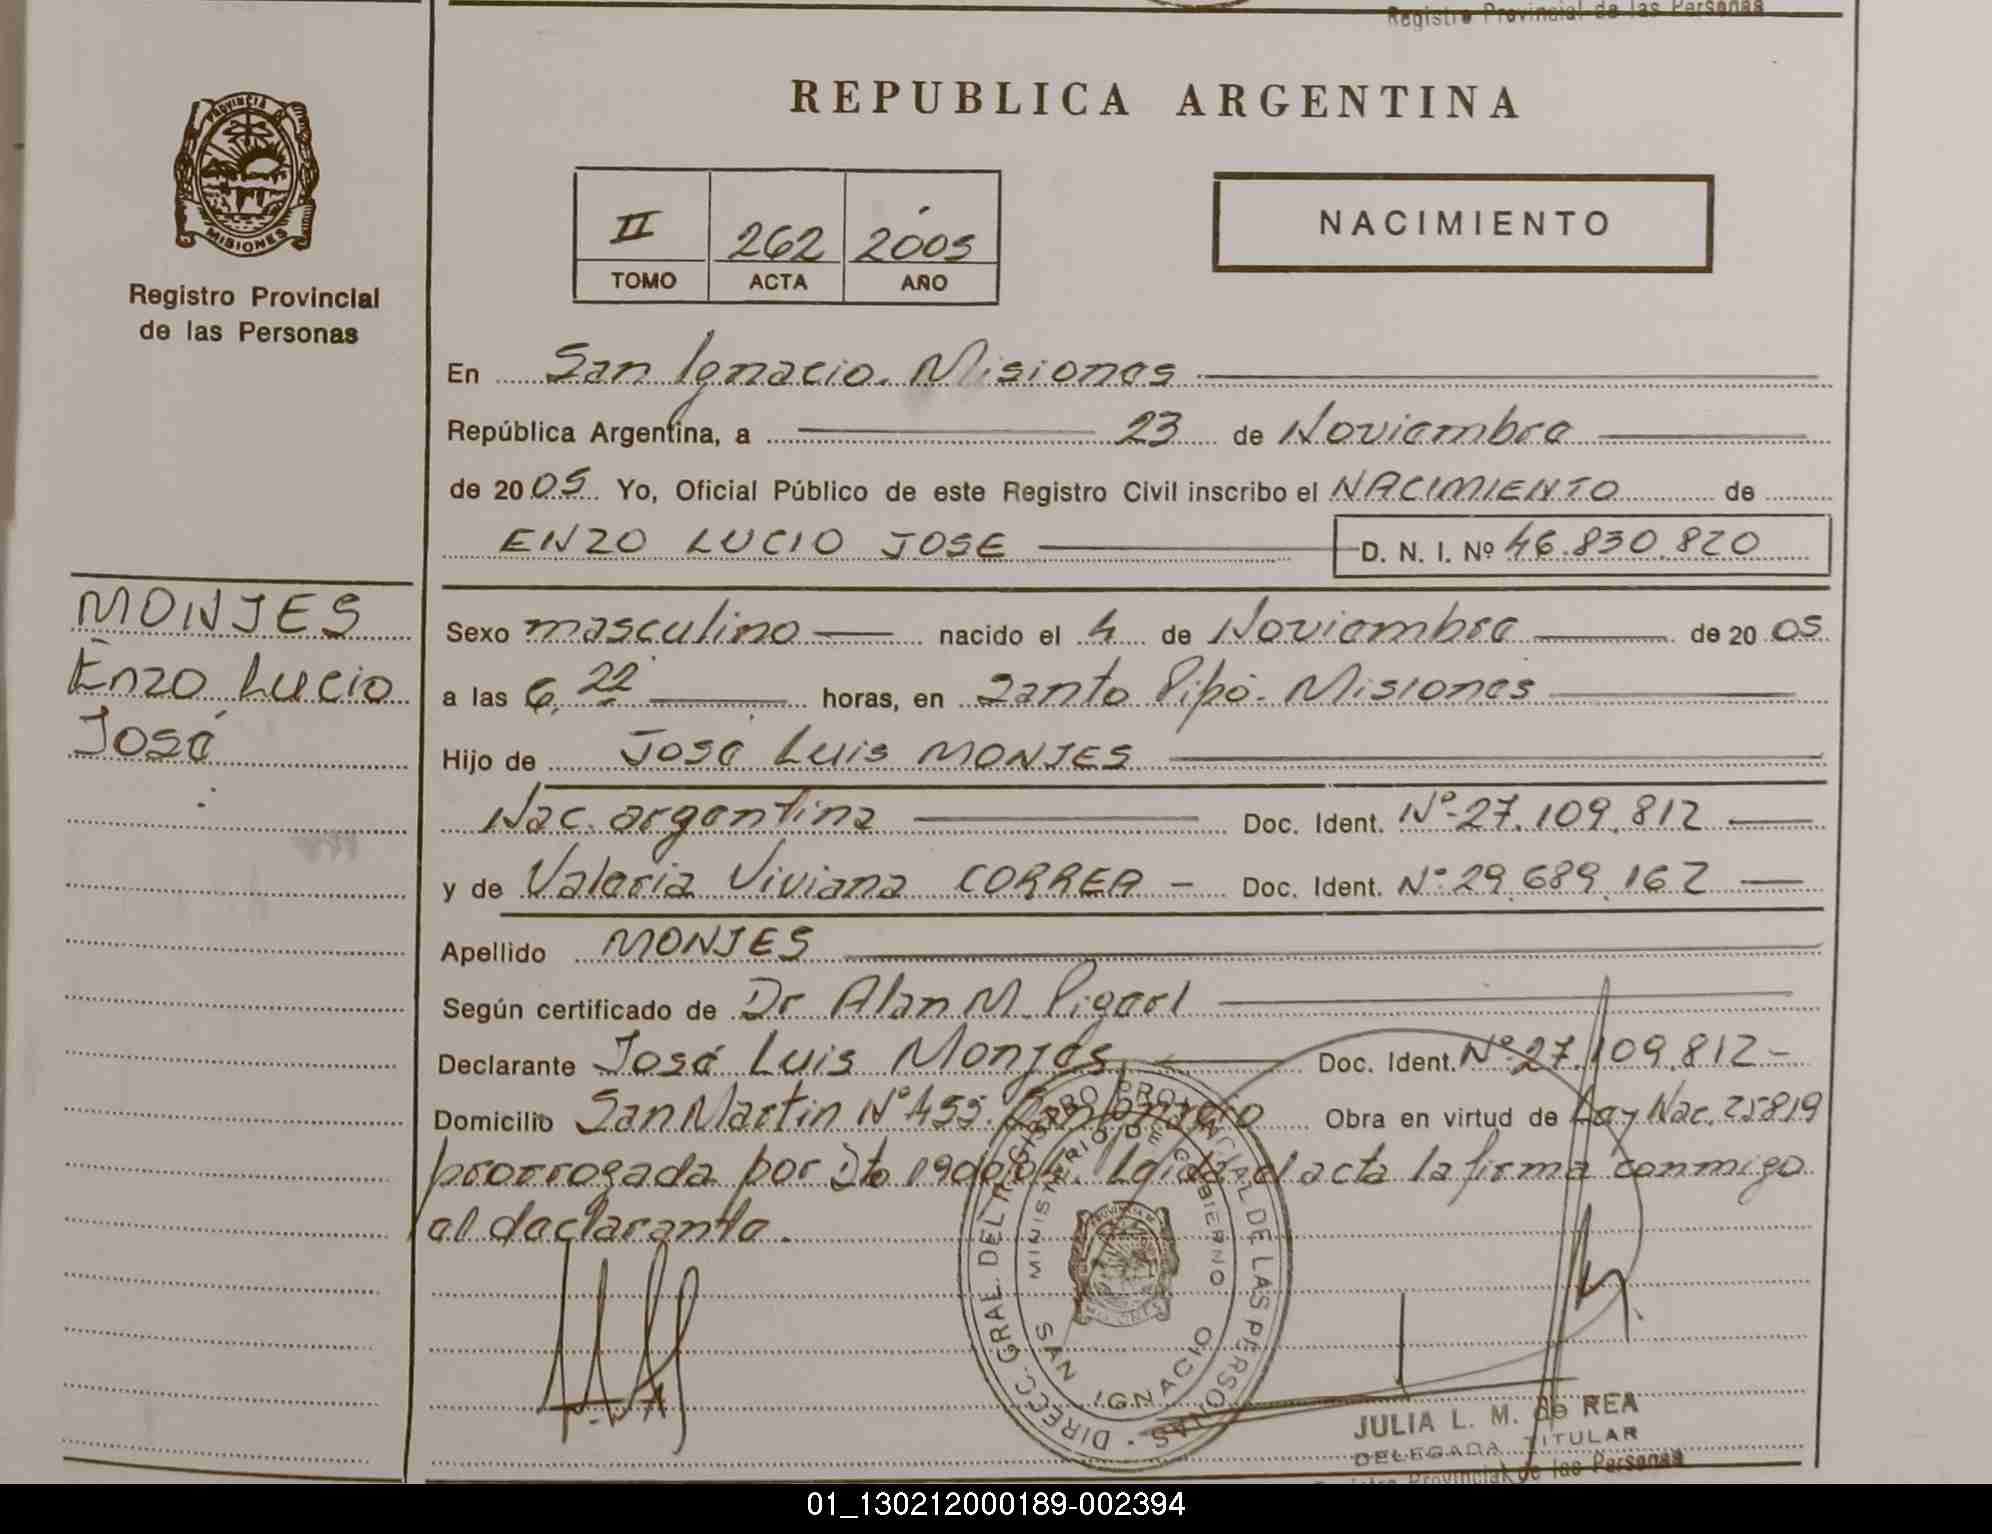 Registro Provincial de las Personas
REPUBLICA ARGENTINA
PROVINCIA D
MISIONES
Registro Provincial
de las Personas
II 262 2005
TOMO ACTA AÑO
NACIMIENTO
En San Ignacio. Misiones
República Argentina, a 23 de Noviembre
de 2005 Yo, Oficial Público de este Registro Civil inscribo el NACIMIENTO de
ENZO LUCIO JOSE D. N. I. Nº 46.830.820
MONJES
Enzo Lucio
José
Sexo masculino nacido el 4 de Noviembre de 2005
a las 6,22 horas, en Santo Pipó. Misiones
Hijo de José Luis MONJES
Nac. argentina Doc. Ident. Nº 27.109.812
y de Valeria Viviana CORREA - Doc. Ident. Nº 29.689.162
Apellido MONJES
Según certificado de Dr Alan M.
Declarante José Luis Monjes Doc. Ident. Nº 27.109.812 -
Domicilio San Martin Nº 455. San Ignacio Obra en virtud de Ley Nac. 25819
prorrogada por Dto 1900/04. Leida el acta la firma conmigo
el declarante.
DIRECC. GRAL. DEL REGISTRO PROVINCIAL DE LAS PERSONAS
MINISTERIO DE GOBIERNO
SAN IGNACIO
JULIA L. M. de REA
DELEGADA TITULAR
Registro Provincial de las Personas
01_130212000189-002394